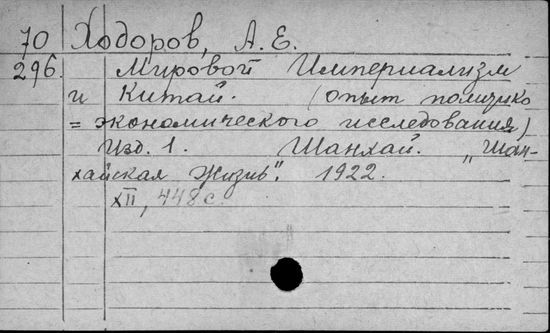 70 Ходоров, А. Е.
296. Мировой Империализм
и Китай. (опыт политико
= экономического исследования)
Изд. 1. Шанхай. „Шан-
хайская Жизнь". 1922.
XII, 448 с.